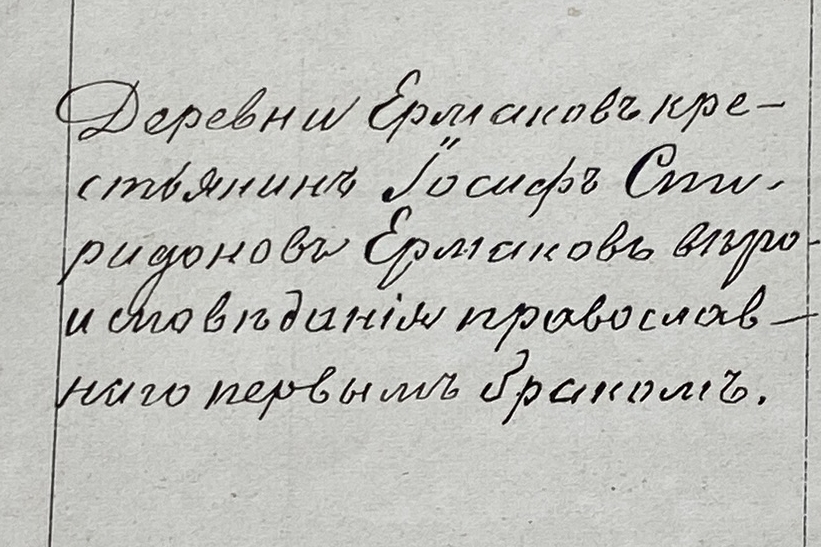 Деревни Ермаковъ кре-
стьянинъ Іосифъ Спи-
ридоновъ Ермаковъ вѣро-
исповѣданія православ-
наго первымъ бракомъ.